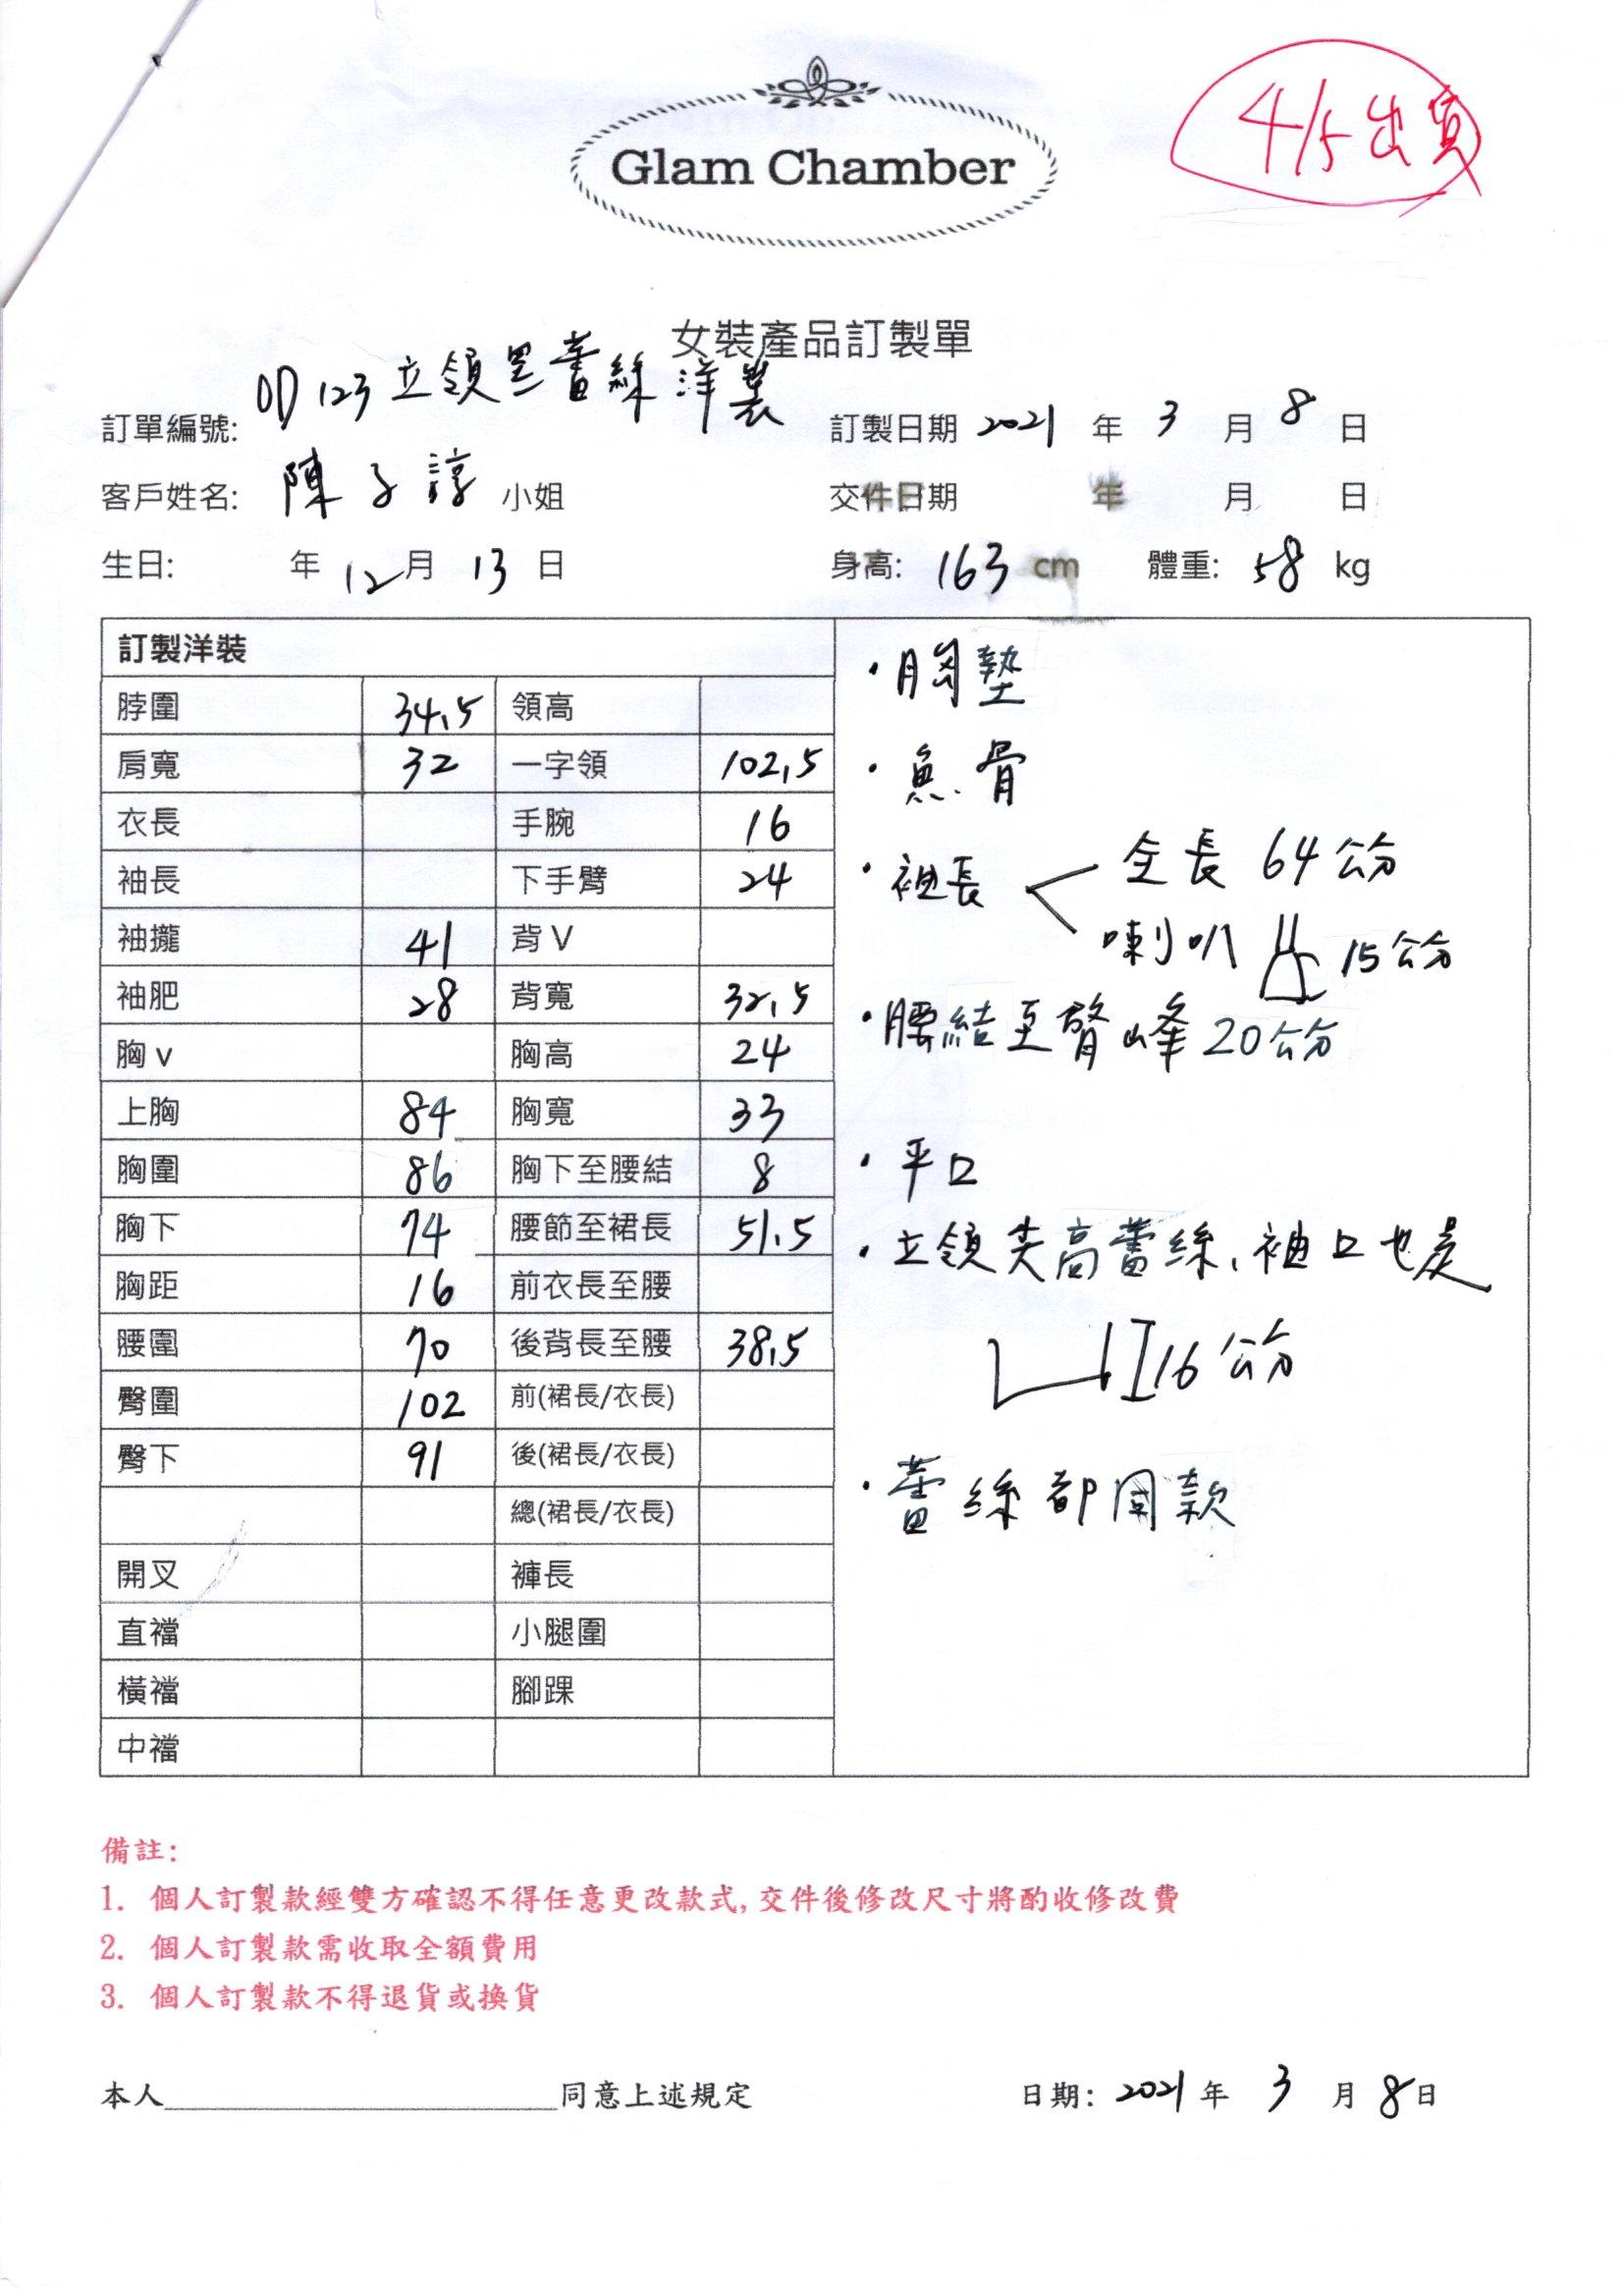 4/5出貨
Glam Chamber
女裝產品訂製單
訂單編號: OD123立領黑蕾絲洋裝
訂製日期 2021 年 3 月 8 日
客戶姓名: 陳子諄 小姐
交件日期 年 月 日
生日: 年 12 月 13 日
身高: 163 cm 體重: 58 kg
訂製洋裝
脖圍 34.5 領高
肩寬 32 一字領 102.5
衣長 手腕 16
袖長 下手臂 24
袖攏 41 背V
袖肥 28 背寬 32.5
胸v 胸高 24
上胸 84 胸寬 33
胸圍 86 胸下至腰結 8
胸下 74 腰節至裙長 51.5
胸距 16 前衣長至腰
腰圍 70 後背長至腰 38.5
臀圍 102 前(裙長/衣長)
臀下 91 後(裙長/衣長)
總(裙長/衣長)
開叉 褲長
直襠 小腿圍
橫襠 腳踝
中襠
・胸墊
・魚骨
・袖長 全長 64公分
喇叭 15公分
・腰結至臀峰20公分
・平口
・立領夾高蕾絲、袖口也是
16公分
・蕾絲都同款
備註:
1. 個人訂製款經雙方確認不得任意更改款式, 交件後修改尺寸將酌收修改費
2. 個人訂製款需收取全額費用
3. 個人訂製款不得退貨或換貨
本人 同意上述規定
日期: 2021 年 3 月 8 日